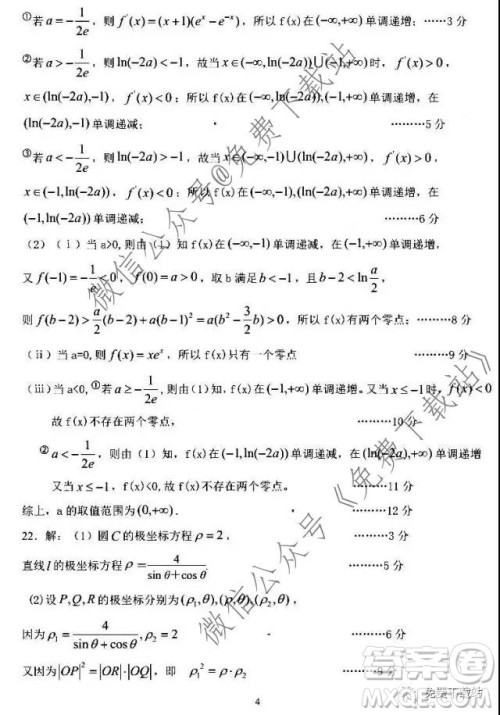 ①若 a=-1/2e，则 f'(x)=(x+1)(e^x-e^-x)，所以 f(x) 在 (-∞,+∞) 单调递增：……3 分
②若 a>-1/2e，则 ln(-2a)<-1，故当 x∈(-∞,ln(-2a))∪(-1,+∞) 时，f'(x)>0，
x∈(ln(-2a),-1)，f'(x)<0：所以 f(x) 在 (-∞,ln(-2a)),(-1,+∞) 单调递增，在
(ln(-2a),-1) 单调递减； ………5 分
③若 a<-1/2e，则 ln(-2a)>-1，故当 x∈(-∞,-1)∪(ln(-2a),+∞) 时，f'(x)>0，
x∈(-1,ln(-2a))，f'(x)<0：所以 f(x) 在 (-∞,-1),(ln(-2a),+∞) 单调递增，在
(-1,ln(-2a)) 单调递减； ………6 分
（2）（ⅰ）当 a>0,则由（1）知 f(x) 在 (-∞,-1) 单调递减，在 (-1,+∞) 单调递增，
又 f(-1)=-1/e<0，f(0)=a>0，取 b 满足 b<-1，且 b-2<ln a/2，
则 f(b-2)>a/2(b-2)+a(b-1)²=a(b²-3/2b)>0，所以 f(x) 有两个零点；………8 分
（ii）当 a=0,则 f(x)=xe^x，所以 f(x) 只有一个零点 ………9 分
（iii）当 a<0,①若 a≥-1/2e,则由（1）知，f(x) 在 (-1,+∞) 单调递增。又当 x≤-1 时，f(x)<0
故 f(x) 不存在两个零点， ………10 分
②a<-1/2e，则由（1）知，f(x) 在 (-1,ln(-2a)) 单调递减，在 (ln(-2a),+∞) 单调递增
又当 x≤-1，f(x)<0，故 f(x) 不存在两个零点。………11 分
综上，a 的取值范围为 (0,+∞). ………12 分
22.解：（1）圆 C 的极坐标方程 ρ=2， ………3 分
直线 l 的极坐标方程 ρ=4/(sinθ+cosθ) ………5 分
(2) 设 P,Q,R 的极坐标分别为 (ρ₁,θ),(ρ,θ),(ρ₂,θ)，
因为 ρ₁=4/(sinθ+cosθ),ρ₂=2 ………6 分
又因为 |OP|²=|OR|·|OQ|，即 ρ₁²=ρ·ρ₂
4
微信公众号@免费下载站
微信公众号《免费下载站》
答案圈
免费下载站